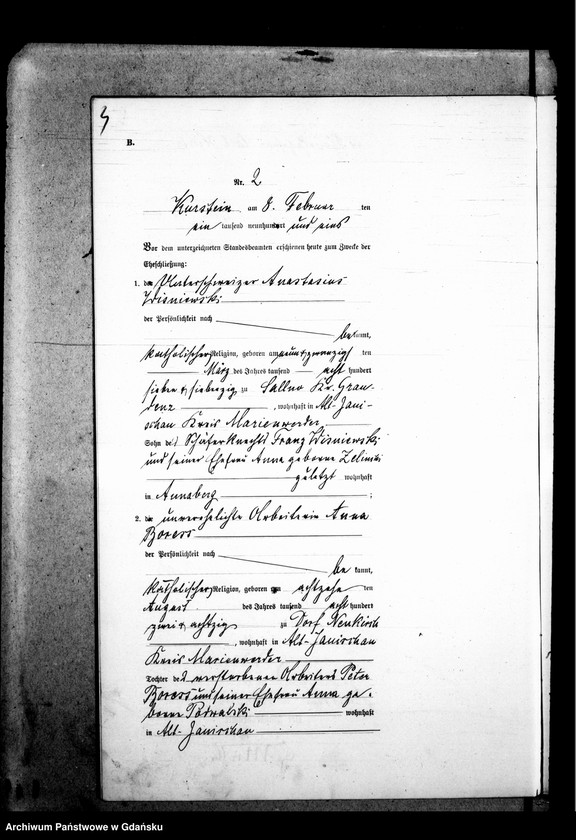 B.
Nr. 2
Kurstein am 8. Februar ten
ein tausend neunhundert und eins
Vor dem unterzeichneten Standesbeamten erschienen heute zum Zwecke der
Eheschließung:
1. der Anastasius
Wisniewski
der Persönlichkeit nach
bekannt,
katholischer Religion, geboren am neun u. zwanzigsten
März des Jahres tausend acht hundert
sieben u. siebenzig zu Sallno Kr. Grau-
denz, wohnhaft in Alt-Jani-
schau Kreis Marienwerder
Sohn des Schäferknechts Franz Wisniewski
und seiner Ehefrau Anna geborene
wohnhaft
in Annaberg;
2. die unverehelichte Arbeiterin Anna
Boress
der Persönlichkeit nach
bekannt,
katholischer Religion, geboren am achtzehn ten
August des Jahres tausend acht hundert
zwei u. achtzig zu Dorf Neukirch
, wohnhaft in Alt-Janischau
Kreis Marienwerder
Tochter des verstorbenen Arbeiters Peter
Boress und seiner Ehefrau Anna ge-
borene Podwalski wohnhaft
in Alt-Janischau
Archiwum Państwowe w Gdańsku